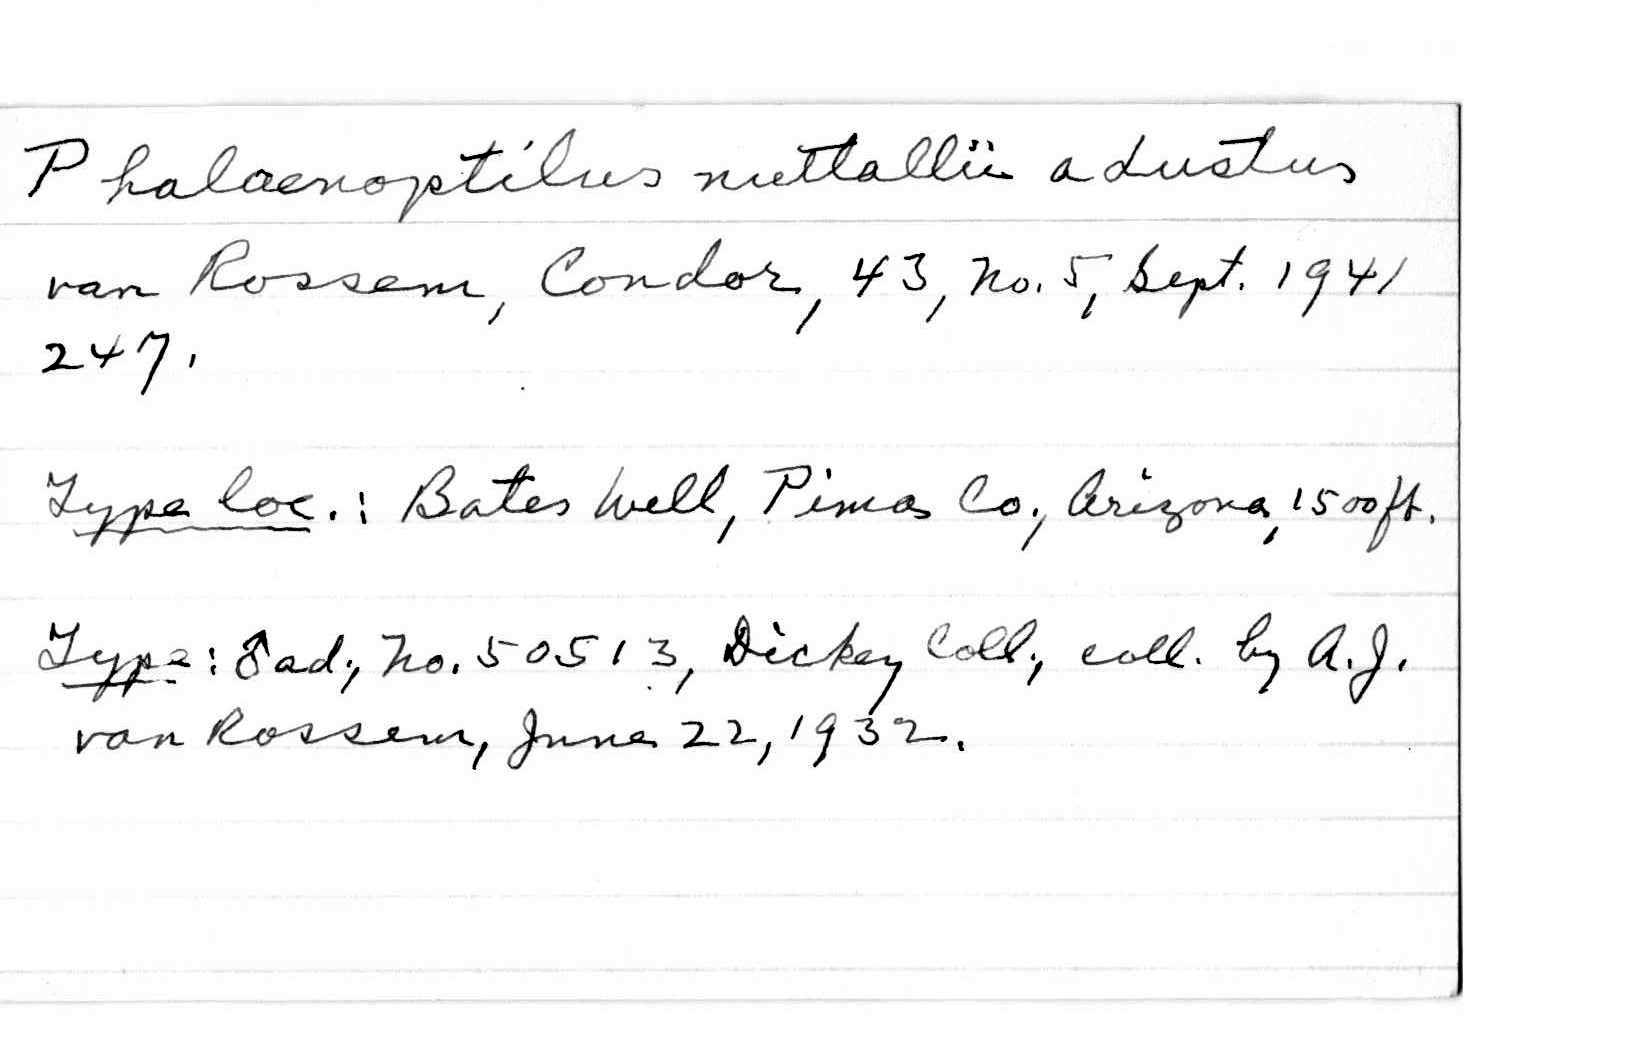 Phalaenoptilus nuttallii adustus
van Rossem, Condor, 43, No. 5, Sept. 1941
247.
Type loc.: Bates Well, Pima Co., Arizona, 1500ft.
Type: ad., No. 50513, Dickey Coll., coll. by A.J.
van Rossem, June 22, 1932.